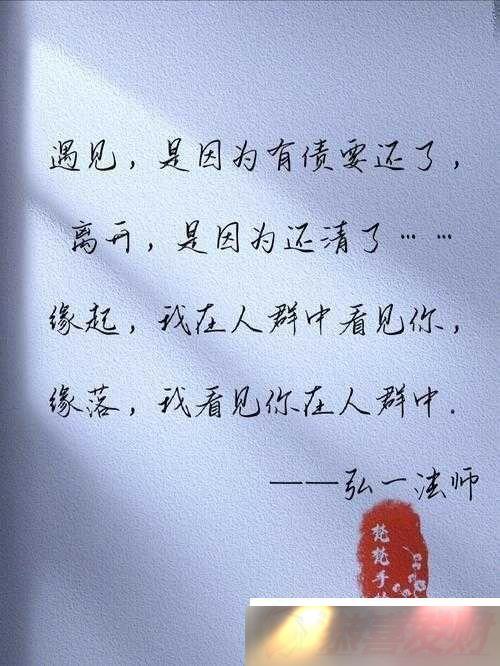 遇见，是因为有债要还了，
离开，是因为还清了……
缘起，我在人群中看见你，
缘落，我看见你在人群中.
——弘一法师
梵梵手